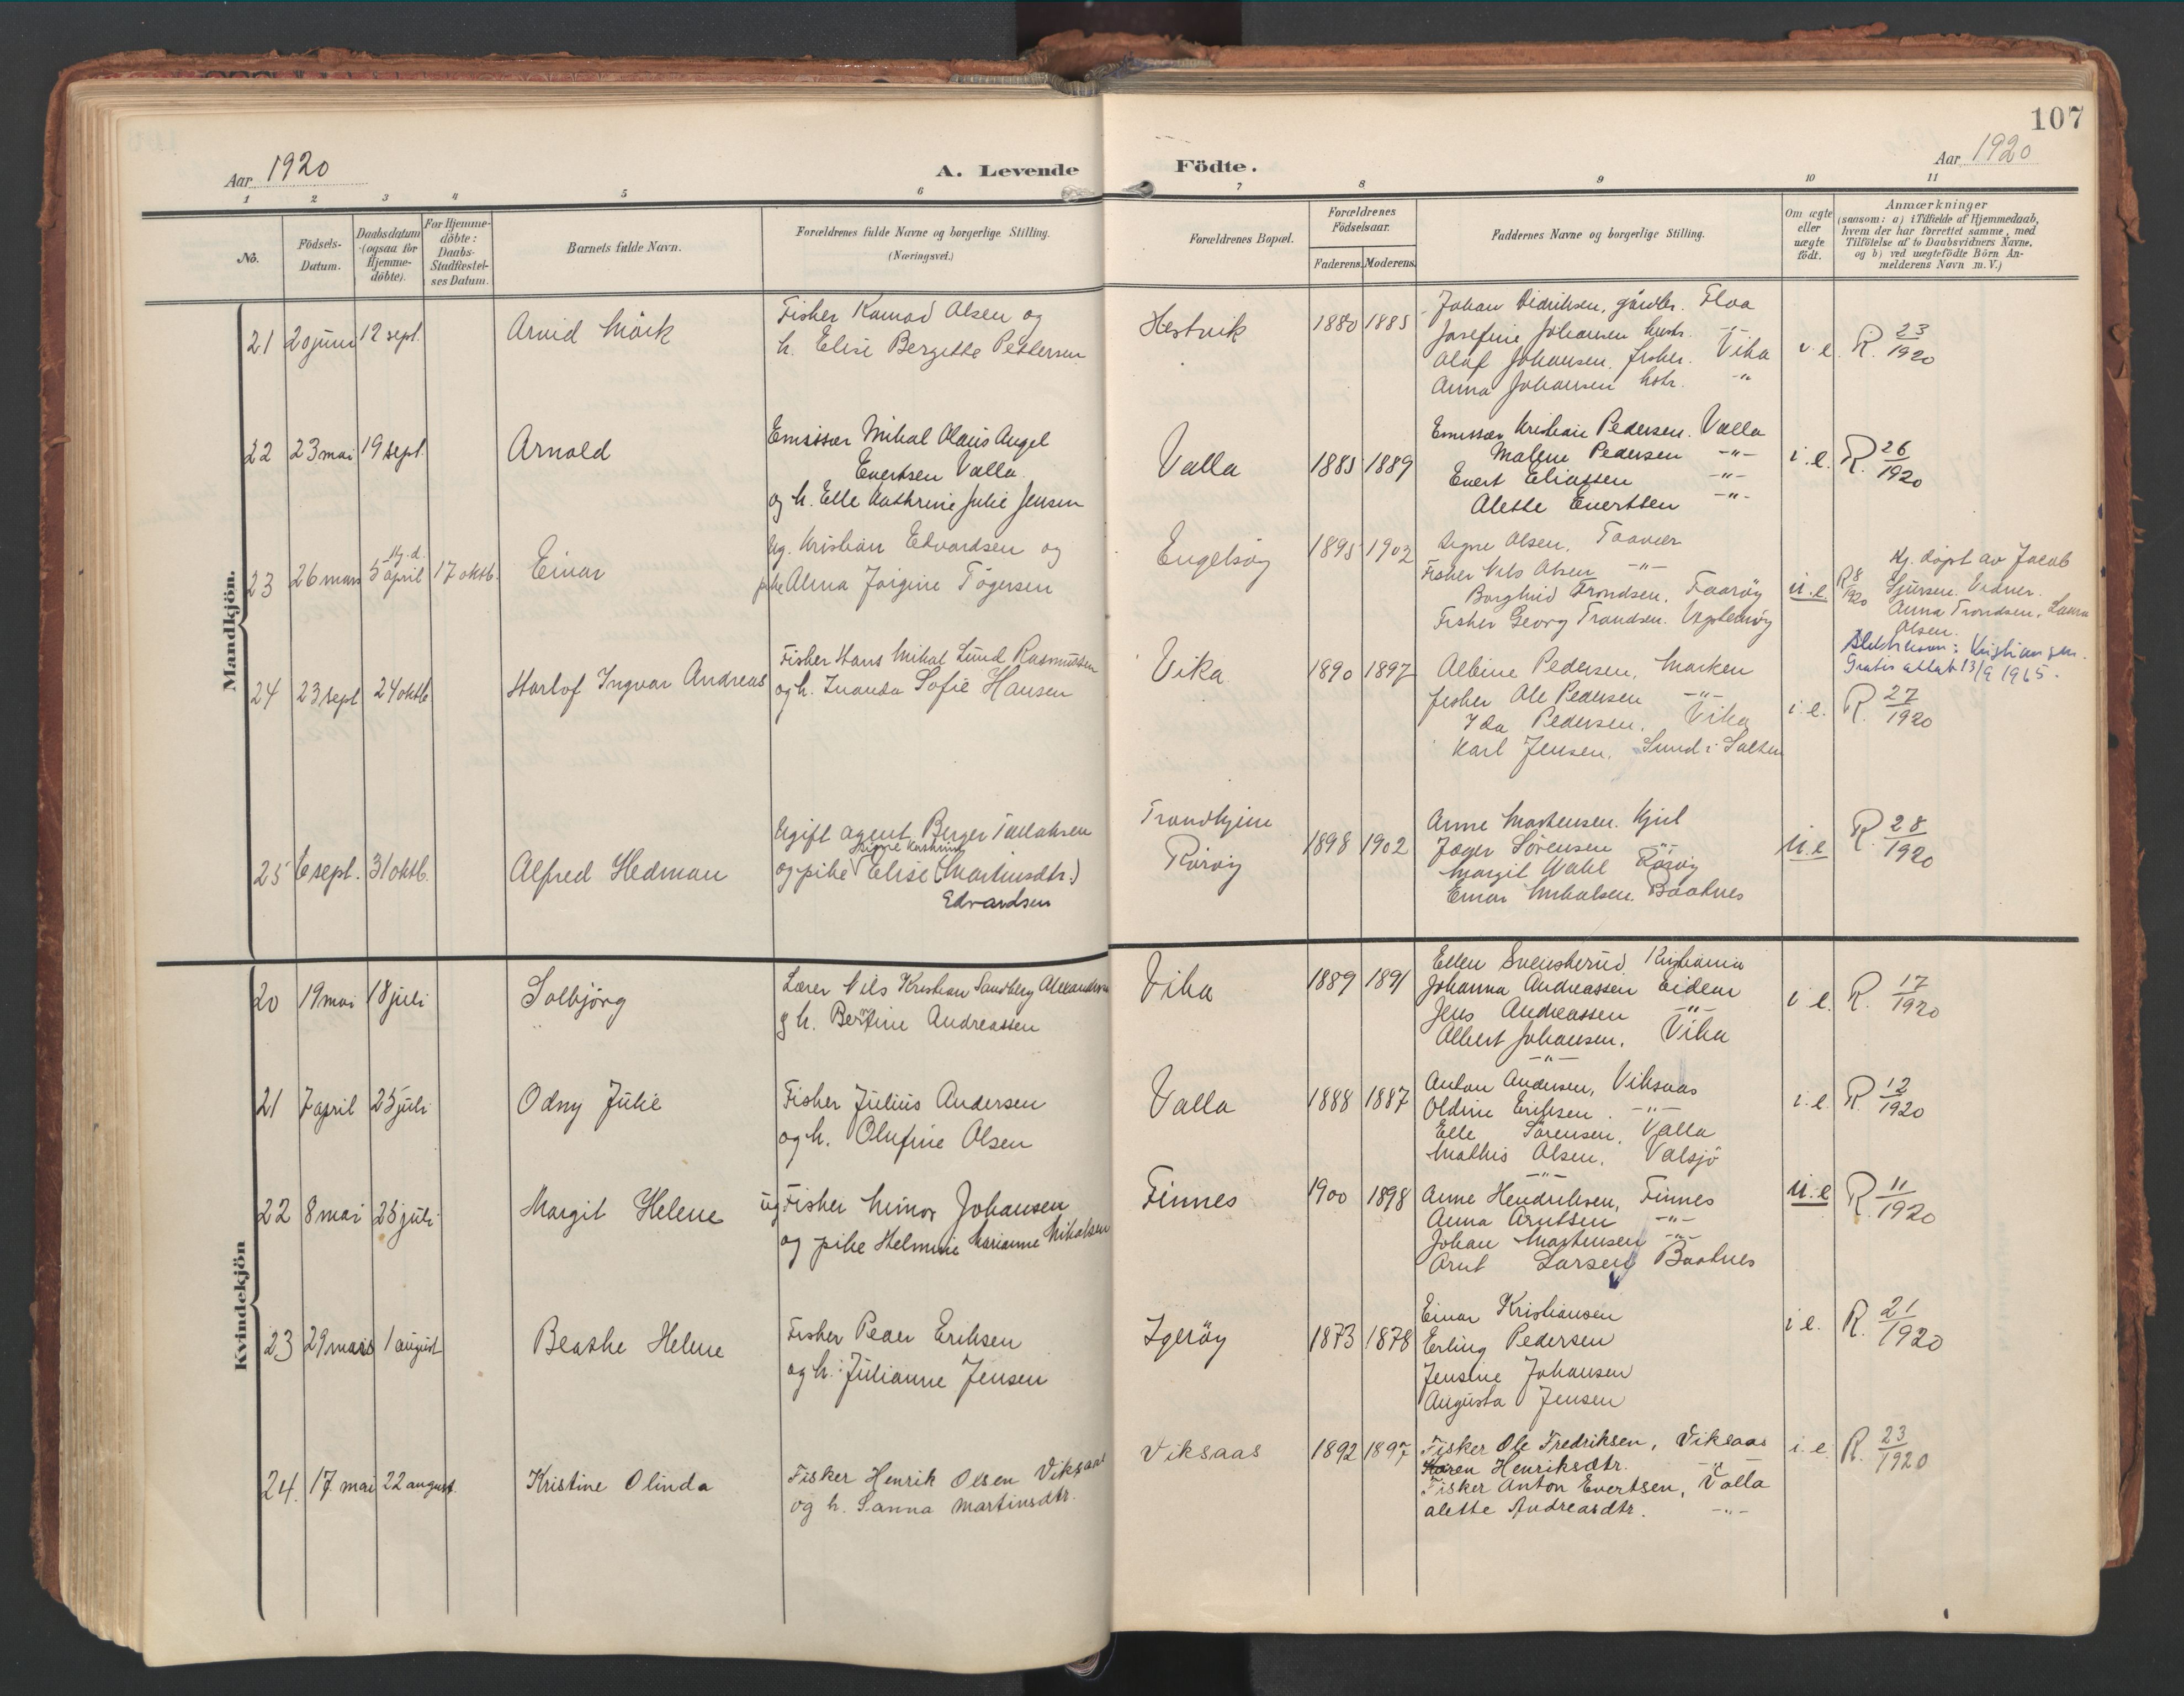 107
Aar 1920
A. Levende Födte.
Aar 1920
1 2 3 4 5 6 7 8 9 10 11
No.
Födsels-Datum.
Daabsdatum (ogsaa for Hjemme-döbte).
For Hjemme-döbte: Daabs-Stadfæstel-ses Datum.
Barnets fulde Navn.
Forældrenes fulde Navne og borgerlige Stilling.
(Næringsvei.)
Forældrenes Bopæl.
Forældrenes Födselsaar.
Faderens. Moderens.
Faddernes Navne og borgerlige Stilling.
Om ægte eller uægte födt.
Anmærkninger
(saasom: a) i Tilfælde af Hjemmedaab, hvem der har forrettet samme, med Tilföielse af to Daabsvidners Navne, og b) ved uægtefödte Börn An-melderens Navn m. V.)
Mandkjön.
21 20 juni 12 sept. Arvid Mörk
Fisker Konrad Olsen og
h. Elise Bergitte Pettersen
Hestvik 1880 1885
Johan Didriksen, gårdbr. Floa
Josefine Johansen hustr. -"-
Olaf Johansen, fisker. Vika
Anna Johansen hstr. -"-
i. e. R. 23/1920
22 23 mai 19 sept. Arnold
Emissær Mikal Olaus Angel
Evertsen Valla
og h. Elle Kathrine Julie Jensen
Valla 1885 1889
Emissær Kristian Pedersen. Valla
Malene Pedersen -"-
Evert Eliassen -"-
Alette Evertsen -"-
i. e. R. 26/1920
23 26 mars Hj. d. 5 april 17 oktb. Einar
Ug. Kristian Edvardsen og
pike Alma Jörgine Tögersen
Engelsöy 1895 1902
Signe Olsen,
Fisker Nils Olsen -"-
Borghild Trondsen.
Fisker Georg Trondsen.
u. e. R 8/1920
Hj. døpt av Jacob
Sjursen. Vidner.
Anna Trondsen, Laura
Olsen.
Gratis attest 13/9 1965.
24 23 sept 24 oktb Harlof Ingvar Andreas
Fisker Hans Mikal Lund Rasmussen
og h. Inanda Sofie Hansen
Vika 1890 1897
Albine Pedersen, Marken
fisher Ole Pedersen -"-
Ida Pedersen. Vika
Karl Jensen, Sund i Salten
i. e. R. 27/1920
25 6 sept. 31 oktb. Alfred Hedman
Ugift agent Berger Tollaksen
og pike Elise (Martinsdtr.)
Edvardsen
Trondhjem
Rörøy
1898 1902
Anne Martensen.
Søren­sen -"-
Margit Wahl Rörøy
Einar Mikalsen. Baaknes
u. e. R. 28/1920
Kvindekjön
20 19 mai 18 juli Solbjörg
Lærer Nils Kristian Sandberg Alexandersen
og h. Bertine Andreassen
Vika 1889 1891
Ellen Svensherud Kristiania
Johanna Andreassen Eidem
Jens Andreassen -"-
Albert Johansen, Vika
-"-
i e. R. 17/1920
21 7 april 25 juli Odny Julie
Fisker Julius Andersen
og h. Olufine Olsen
Valla 1888 1887
Anton Andersen, Viksaas
Oldine Eriksen. -"-
Elle Sörensen, Valla
Mathis Olsen, Valsjö
-"-
i. e. R. 12/1920
22 8 mai 25 juli Margit Helene
ug Fisker Minor Johansen
og pike Helmine Marianne Mikalsen
Finnes 1900 1898
Anne Hendriksen, Finnes
Anna Arntsen -"-
Johan Martensen -"-
Arnt Larsen Baaknes
u. e R. 11/1920
23 29 mars 1 august Beathe Helene
Fisker Peder Eriksen
og h. Julianne Jensen
Igeröy 1873 1878
Einar Kristiansen
Erling Pedersen
Jensine Johansen
Augusta Jensen
i e. R. 21/1920
24. 17 mai 22 august. Kristine Olinda
Fisker Henrik Olsen Viksaas
og h. Sanna Martinsdtr.
Viksaas 1892 1897
Fisker Ole Fredriksen, Viksaas
Karen Henriksdtr. -"-
Fisker Anton Evertsen, Valla
Alette Andreasdtr. -"-
i. e. R. 23/1920